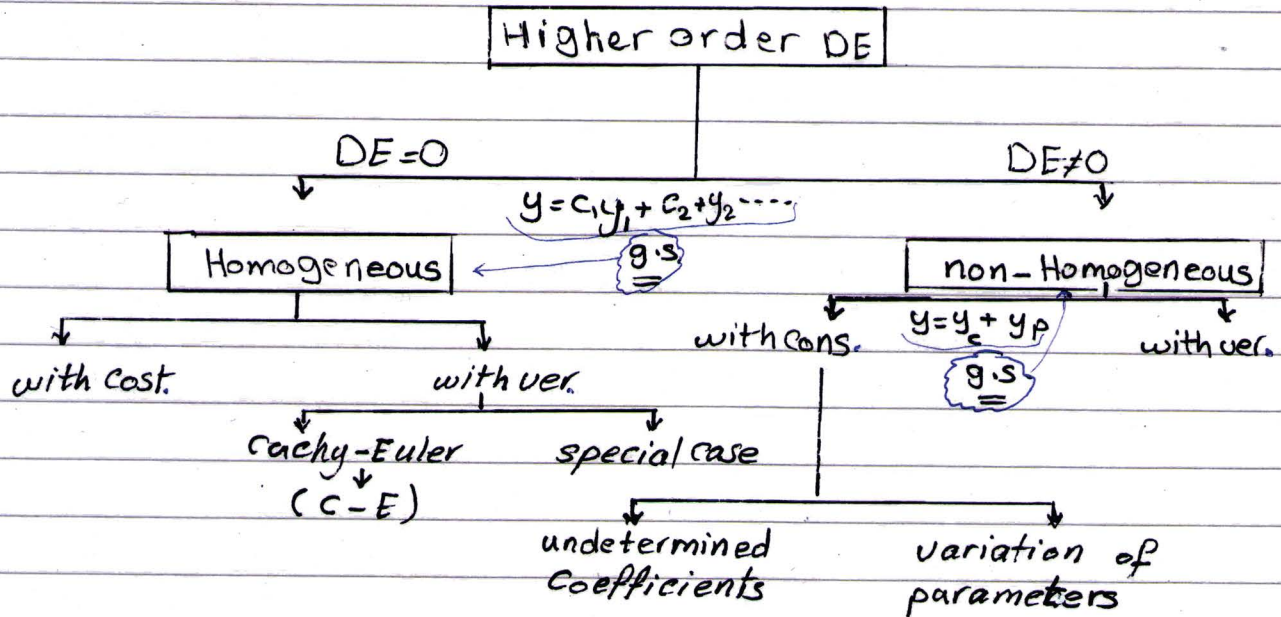 Higher order DE
DE=0
DE≠0
y = C₁y₁ + C₂+y₂ ----
g.s
Homogeneous
non-Homogeneous
with cons.
y = y_c + y_p
with ver.
g.s
with cost.
with ver.
Cachy-Euler
special case
(C-E)
undetermined
Coefficients
variation of
parameters